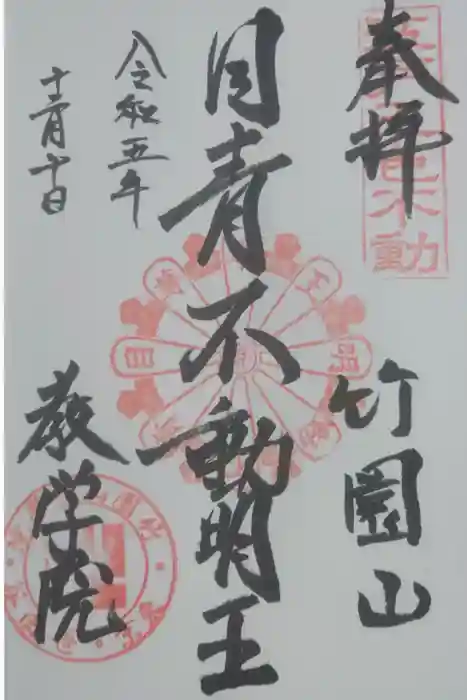 奉拝
竹園山
目青不動明王
令和五年
十二月十日
教学院
五色不動